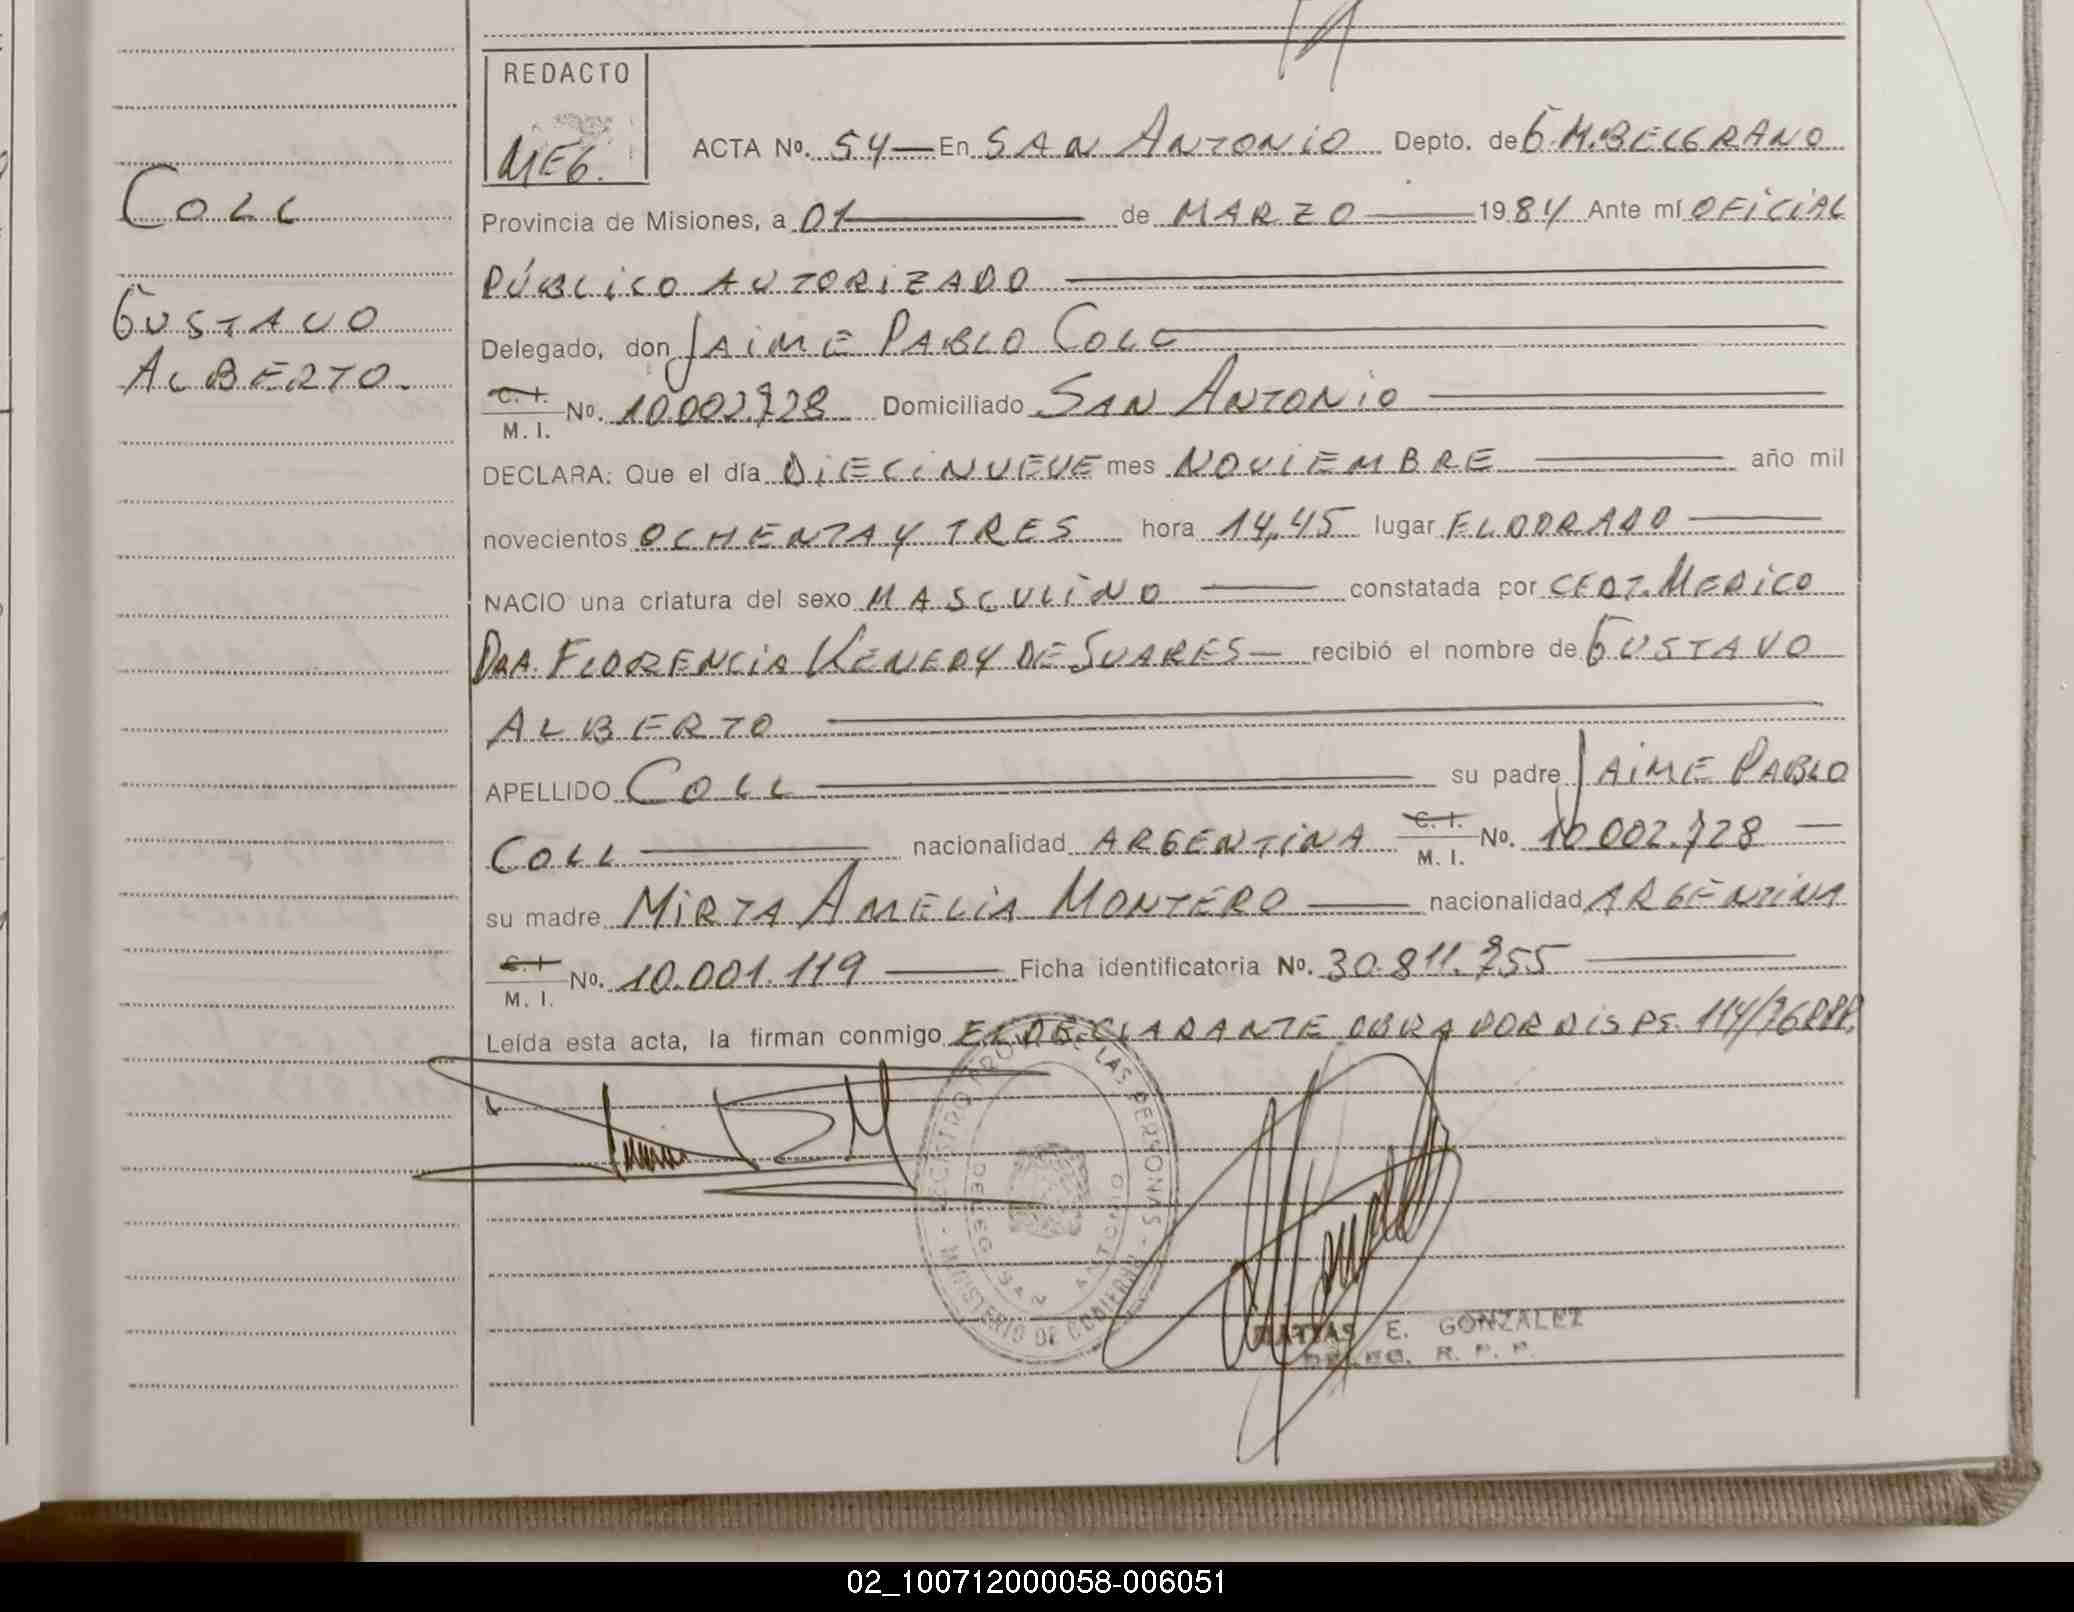 REDACTO
MEG.
ACTA Nº. 54 En SAN ANTONIO Depto. de G. M. BELGRANO
COLL
Provincia de Misiones, a 01 de MARZO 1984 Ante mí OFICIAL
PÚBLICO AUTORIZADO
GUSTAVO
ALBERTO.
Delegado, don JAIME PABLO COLL
C. I.
M. I. Nº. 10.002.728 Domiciliado SAN ANTONIO
DECLARA: Que el día DIECINUEVE mes NOVIEMBRE año mil
novecientos OCHENTA Y TRES hora 14,45 lugar ELDORADO
NACIO una criatura del sexo MASCULINO constatada por CERT. MEDICO
DRA. FLORENCIA KENEDY DE SUARES recibió el nombre de GUSTAVO
ALBERTO
APELLIDO COLL su padre JAIME PABLO
COLL nacionalidad ARGENTINA C. I. M. I. Nº. 10.002.728
su madre MIRTA AMELIA MONTERO nacionalidad ARGENTINA
C. I.
M. I. Nº. 10.001.119 Ficha identificatoria Nº. 30.811.755
Leída esta acta, la firman conmigo EL DECLARANTE OBRADOR DISPS. 114/76 RPP.
REGISTRO PROV. DE LAS PERSONAS
DELEG. SAN ANTONIO
MINISTERIO DE GOBIERNO
MATIAS E. GONZALEZ
DELEG. R. P. P.
02_100712000058-006051